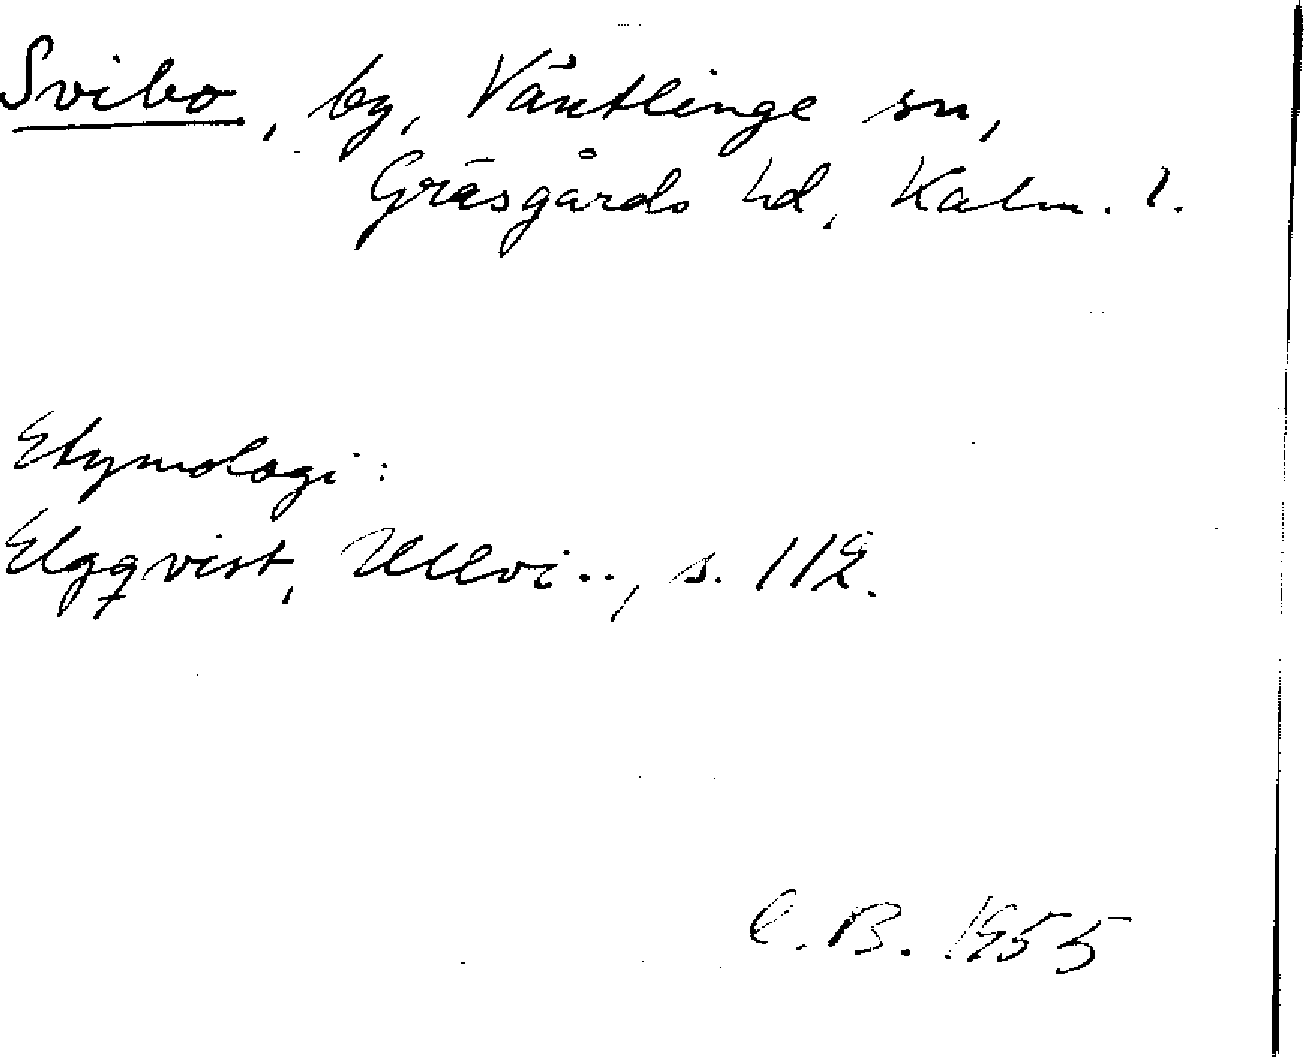 Svibo, by, Väntlinge sn,
Gräsgårds hd, Kalm. l.
Etymologi:
Elgqvist, Ullvi.., s. 112.
C. B. 1955